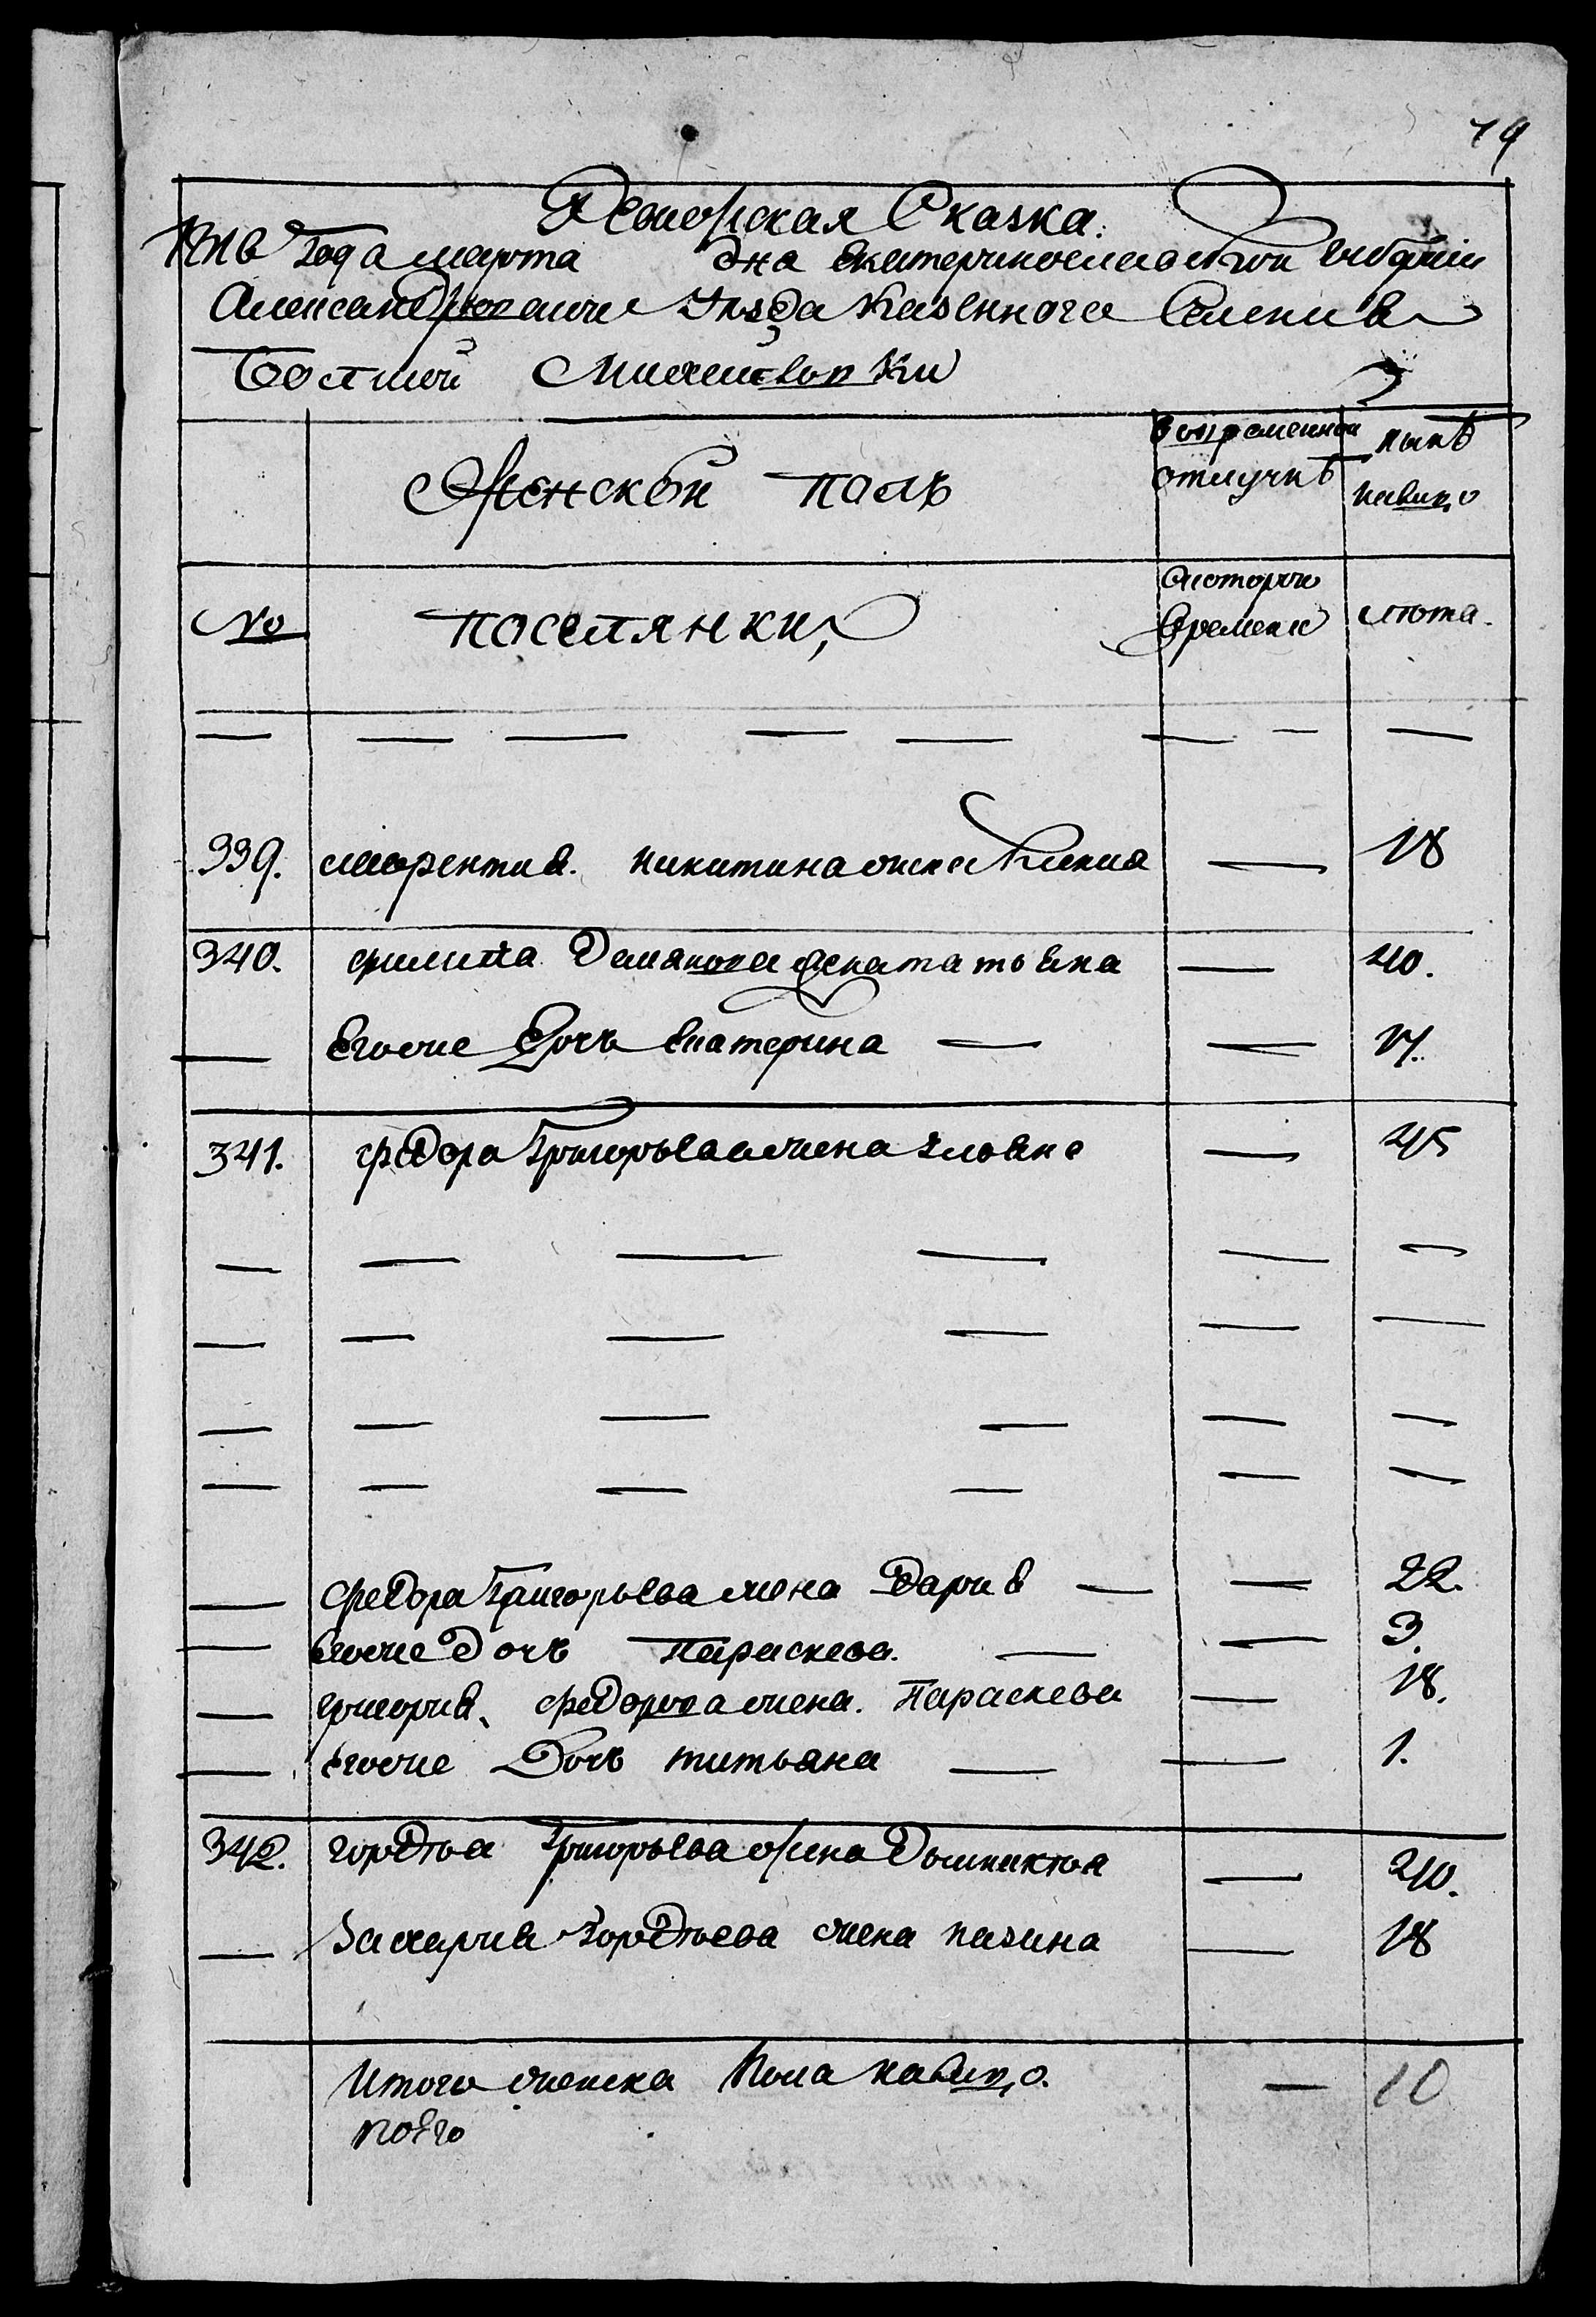 79
Ревизская Сказка.
1816 года марта дня Екатеринославской губернии
Александровского Уезда казенного Селения
Болшой Михайловки
Женской полъ
во временной отлучкѣ
нынѣ налицо
№
поселянки,
с которого времени
лѣта.
— — — — — — — —
339. лаврентия никитина жена — 18
340. филипа Демянова жена татьяна — 40.
— Егоже Дочь Екатерина — — 17.
341. федора Григорьева жена ульяна — 45
— — — — — —
— — — — — —
— — — — — —
— — — — — —
— федора Григорьева жена Дария — — 22.
— Егоже Дочь Параскева. — — 3.
— григория федорова жена. Параскева — 18.
— Егоже Дочь татьяна — — 1.
342. гордѣя Григорьева жена — 40.
— Захария Гордѣева жена — 18
Итого женска Пола налицо. — 10